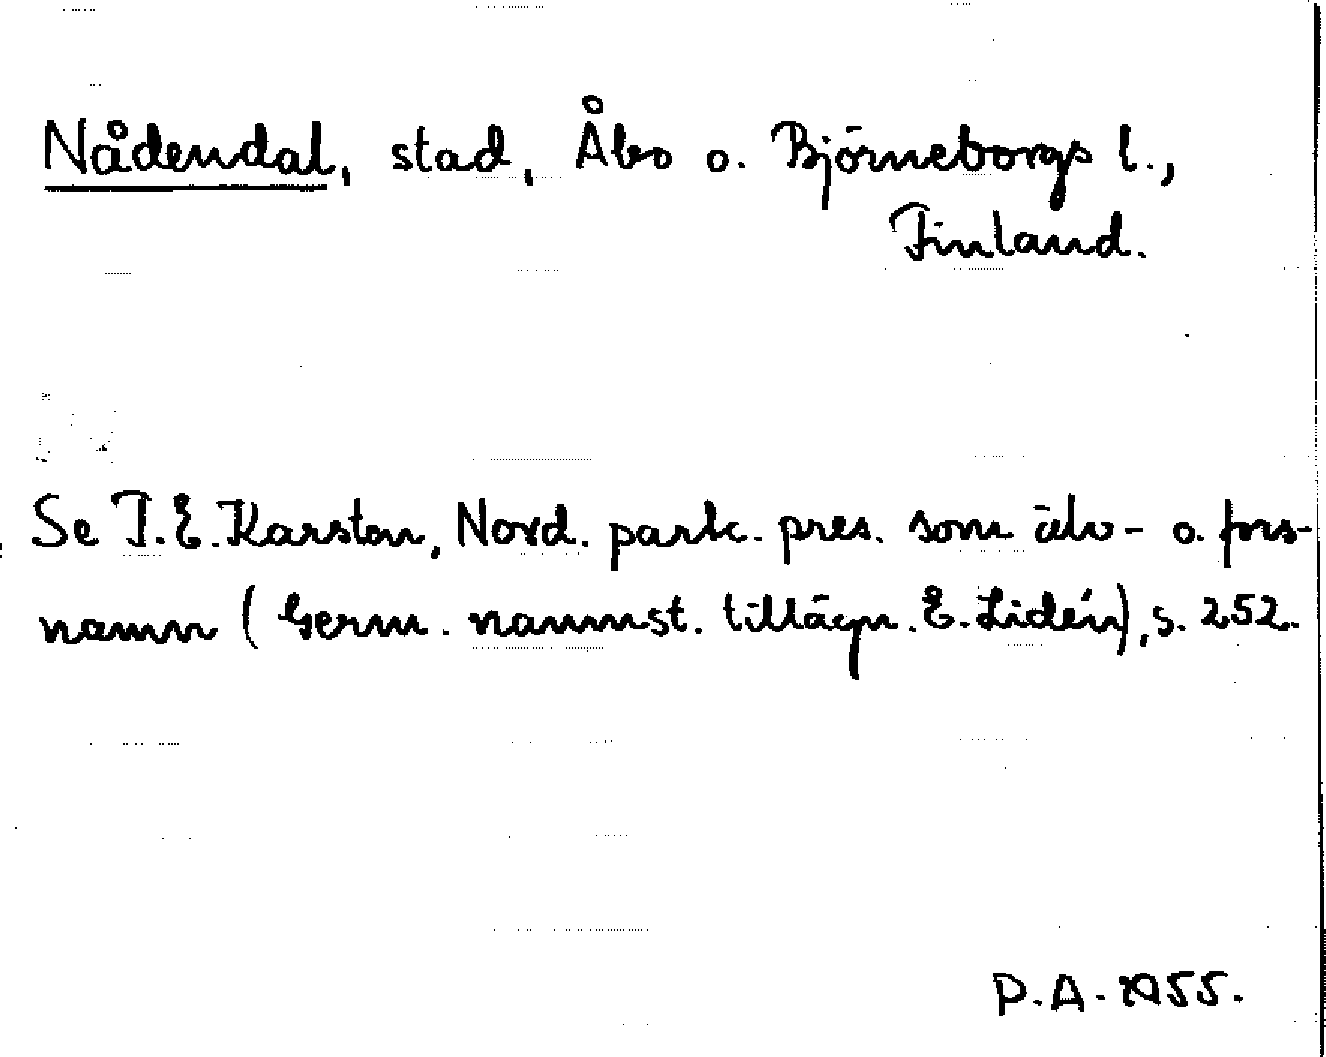 Nådendal, stad, Åbo o. Björneborgs l.,
Finland.
Se T.E. Karsten, Nord. partc. pres. som älv- o. fors-
namn (Germ. namnst. tillägn. E. Lidén), s. 252.
P.A. 1955.